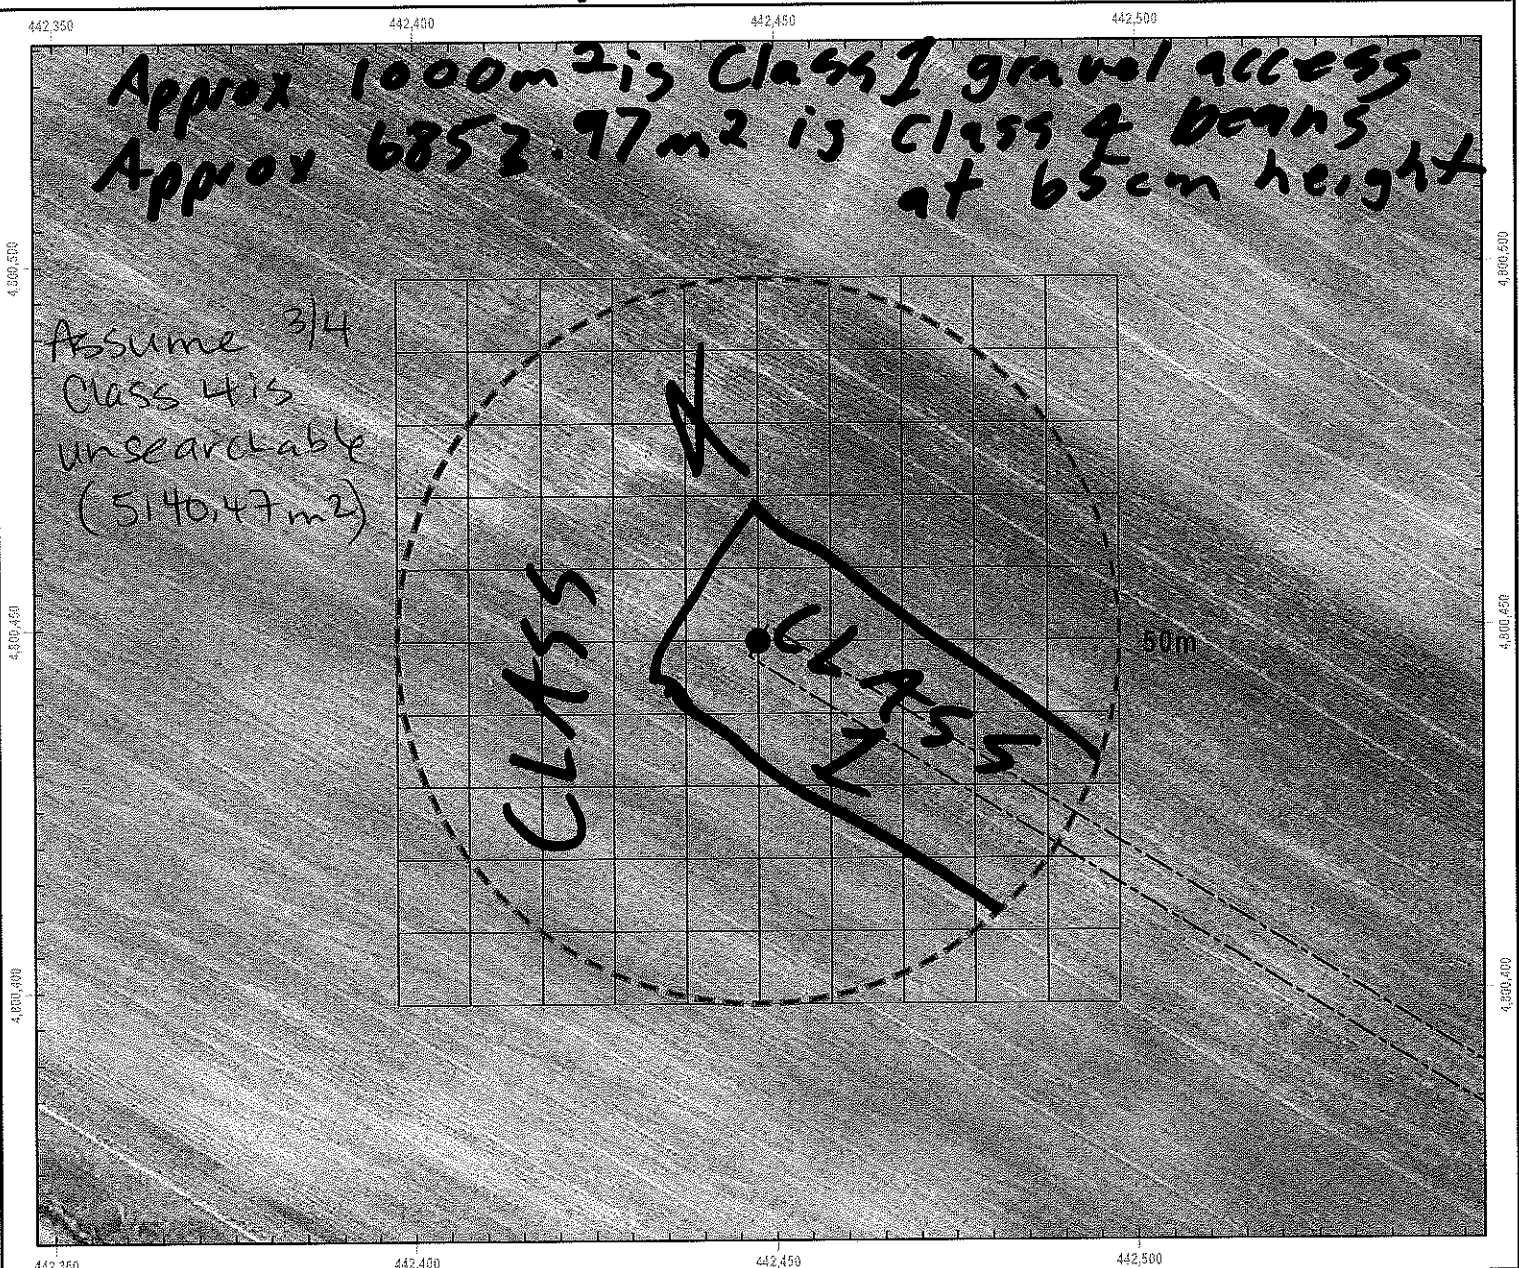 442,350 442,400 442,450 442,500
Approx 1000m2 is Class 1 gravel access
Approx 6853.97m2 is class 4 beans
at 65cm height
4,800,500 4,800,500
Assume 3/4
Class 4 is
unsearchable
(5140.47m2)
CLASS 4
CLASS
1
50m
4,800,450 4,800,450
4,800,400 4,800,400
442,350 442,400 442,450 442,500